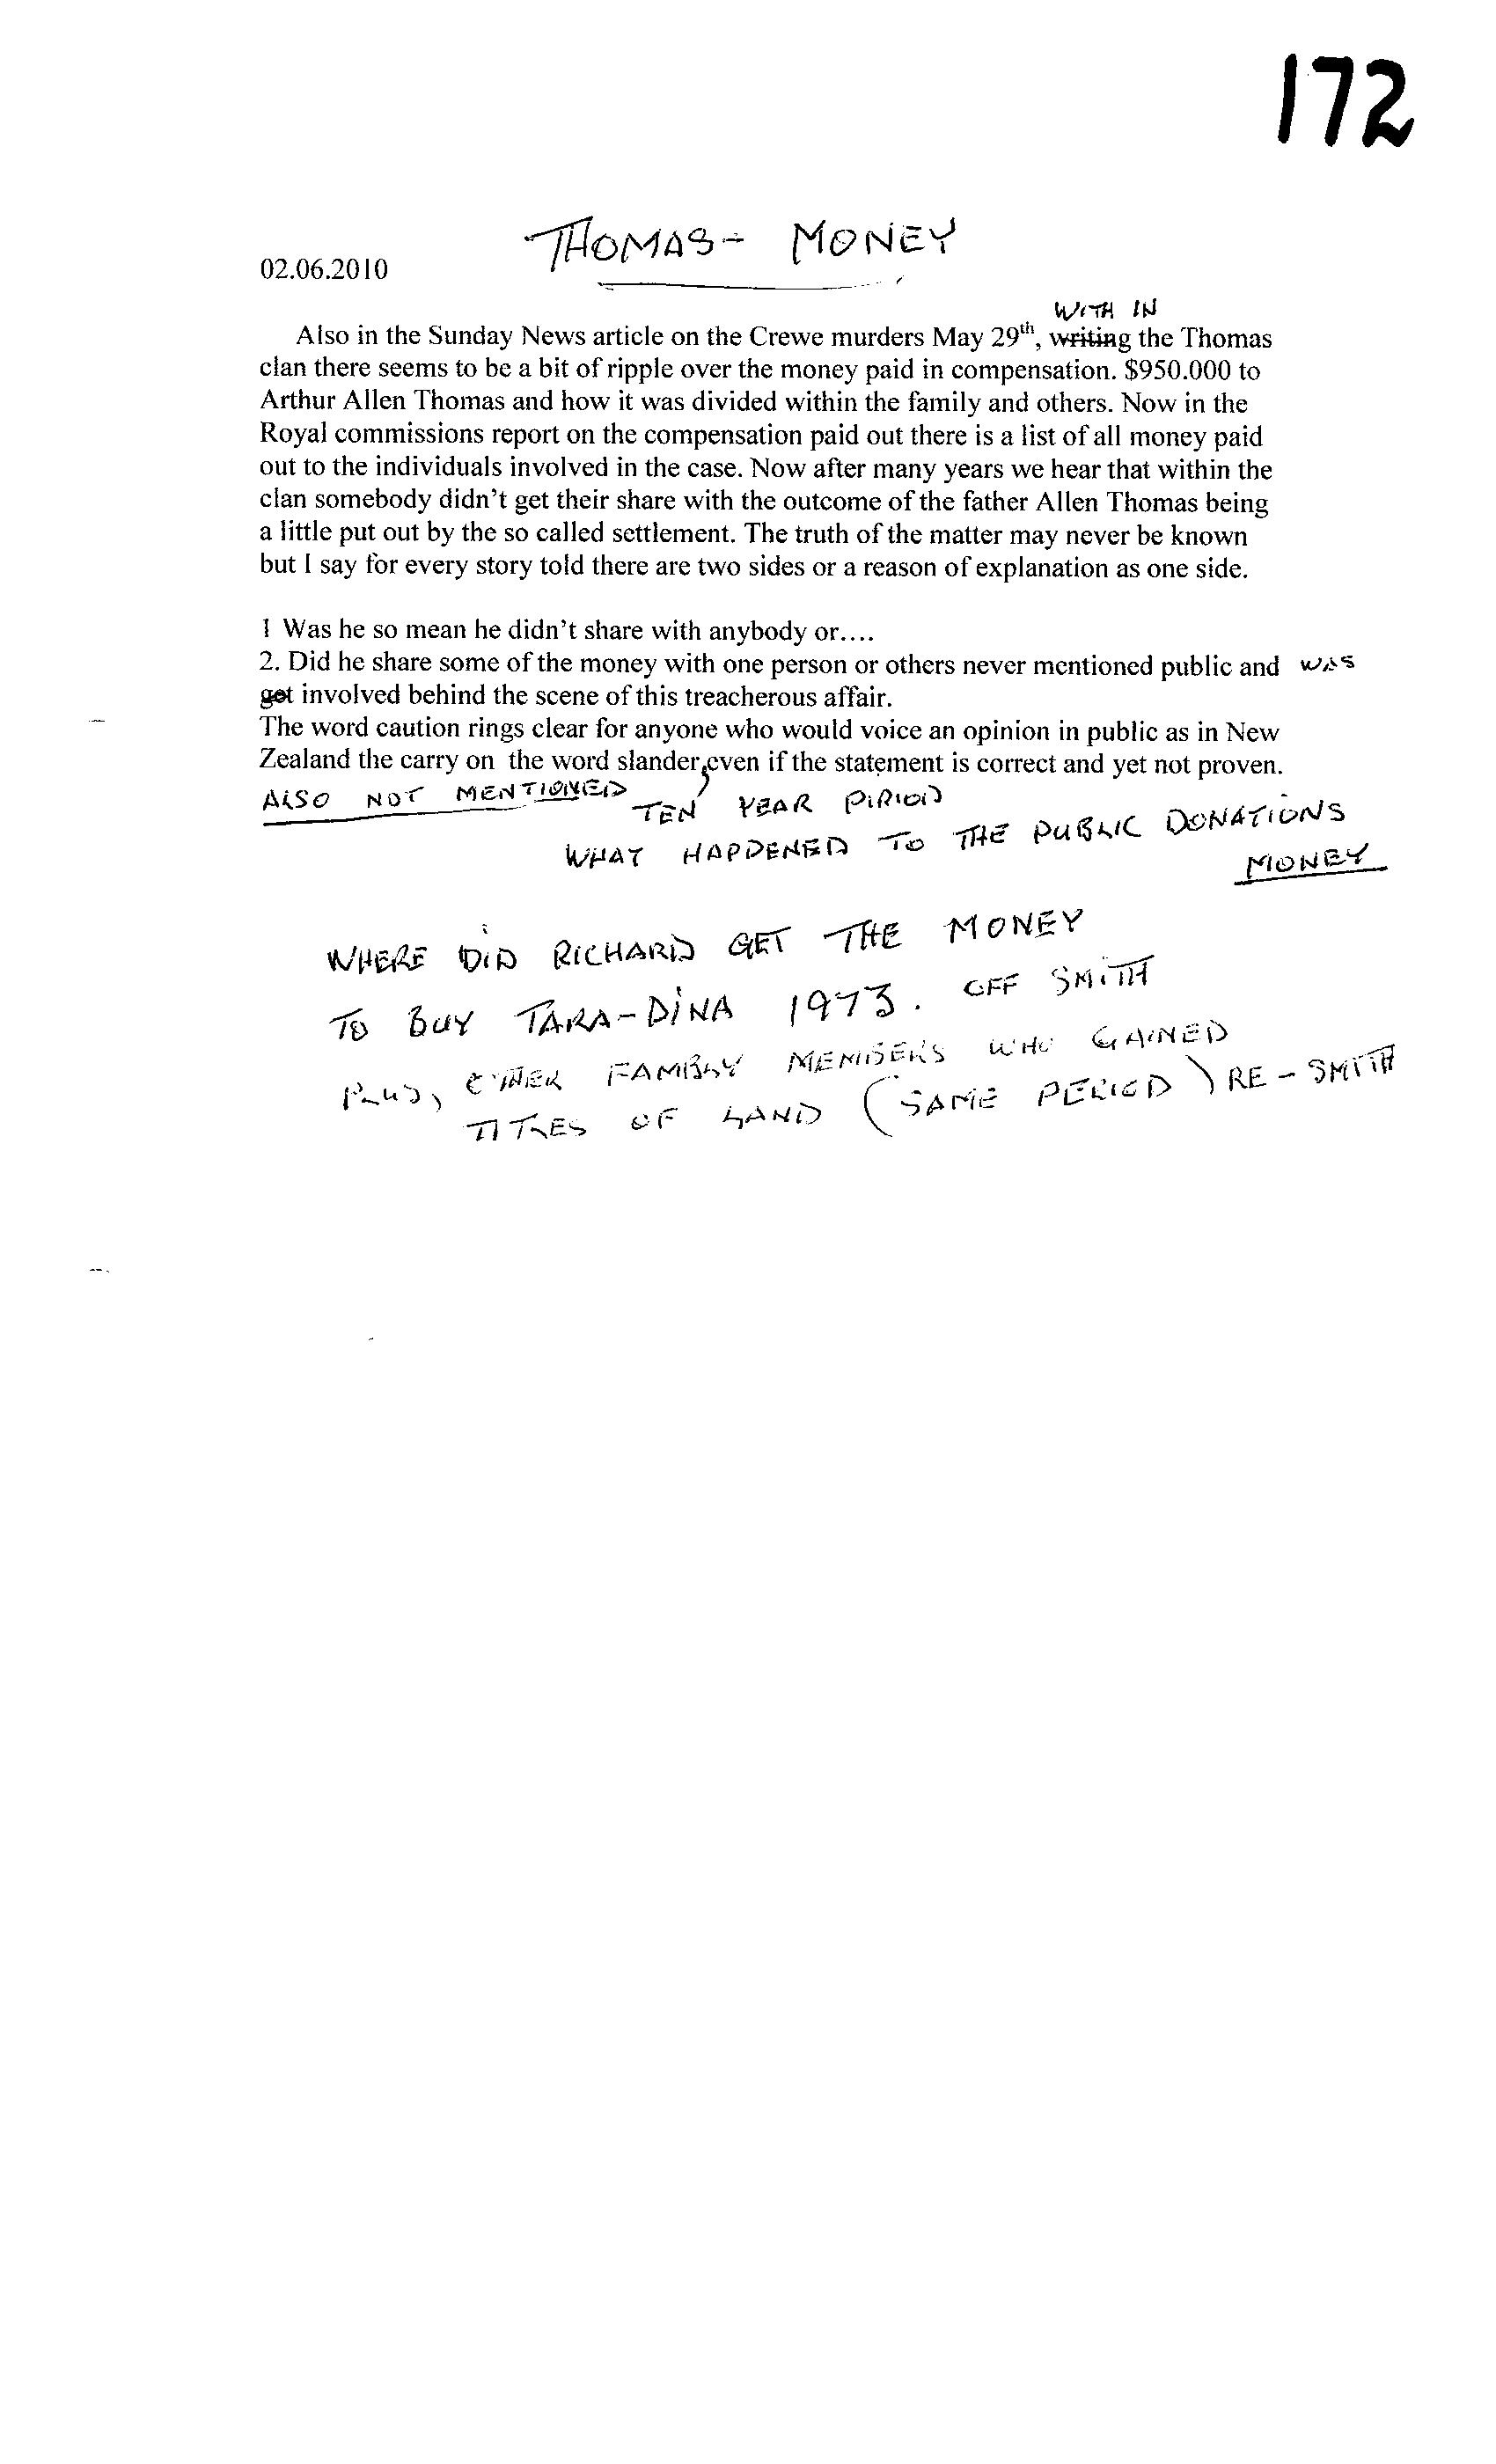 172
THOMAS - MONEY
02.06.2010
WITH IN
Also in the Sunday News article on the Crewe murders May 29th, writing the Thomas
clan there seems to be a bit of ripple over the money paid in compensation. $950.000 to
Arthur Allen Thomas and how it was divided within the family and others. Now in the
Royal commissions report on the compensation paid out there is a list of all money paid
out to the individuals involved in the case. Now after many years we hear that within the
clan somebody didn't get their share with the outcome of the father Allen Thomas being
a little put out by the so called settlement. The truth of the matter may never be known
but I say for every story told there are two sides or a reason of explanation as one side.
1 Was he so mean he didn't share with anybody or....
2. Did he share some of the money with one person or others never mentioned public and WAS
got involved behind the scene of this treacherous affair.
The word caution rings clear for anyone who would voice an opinion in public as in New
Zealand the carry on the word slander, even if the statement is correct and yet not proven.
ALSO NOT MENTIONED TEN YEAR PIRIOD
WHAT HAPPENED TO THE PUBLIC DONATIONS
MONEY
WHERE DID RICHARD GET THE MONEY
TO BUY TARA-DINA 1973. OFF SMITH
PLUS, OTHER FAMBLY MEMBERS WHO GAINED
TITLES OF LAND (SAME PERIOD) RE - SMITH